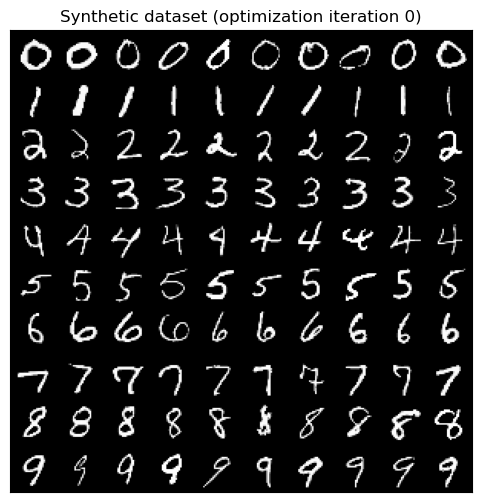 Synthetic dataset (optimization iteration 0)
0 0 0 0 0 0 0 0 0 0
1 1 1 1 1 1 1 1 1 1
2 2 2 2 2 2 2 2 2 2
3 3 3 3 3 3 3 3 3 3
4 4 4 4 4 4 4 4 4 4
5 5 5 5 5 5 5 5 5 5
6 6 6 6 6 6 6 6 6 6
7 7 7 7 7 7 7 7 7 7
8 8 8 8 8 8 8 8 8 8
9 9 9 9 9 9 9 9 9 9